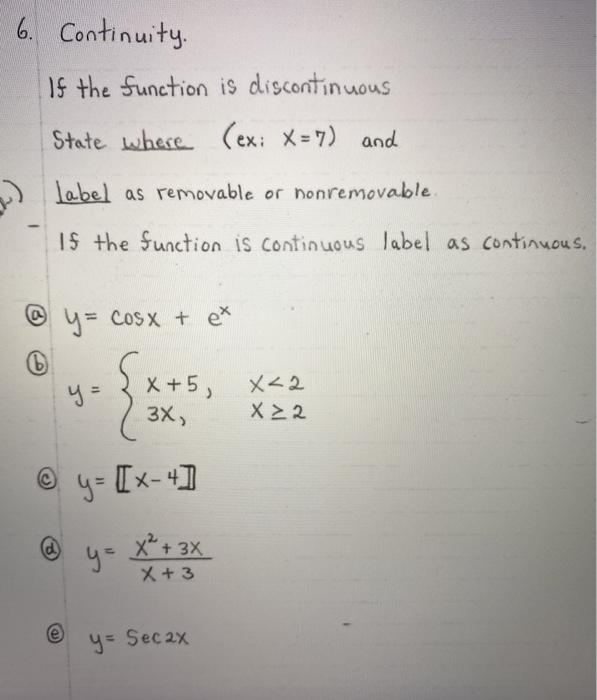 6. Continuity.
If the function is discontinuous
State where (ex: X=7) and
label as removable or nonremovable.
- If the function is continuous label as continuous.
ⓐ y = cosx + eˣ
ⓑ y = { x+5, x<2
3x, x≥2
ⓒ y = ⟦x-4⟧
ⓓ y = x²+3x / x+3
ⓔ y = Sec2x